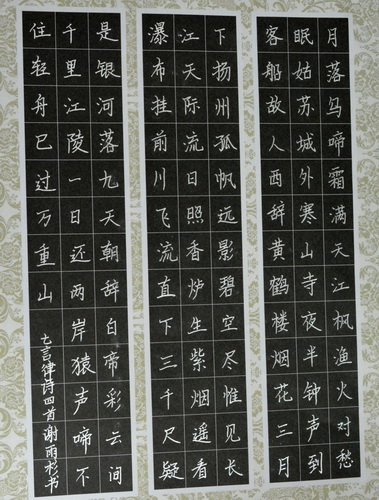 月落乌啼霜满天江枫渔火对愁
眠姑苏城外寒山寺夜半钟声到
客船故人西辞黄鹤楼烟花三月
下扬州孤帆远影碧空尽惟见长
江天际流日照香炉生紫烟遥看
瀑布挂前川飞流直下三千尺疑
是银河落九天朝辞白帝彩云间
千里江陵一日还两岸猿声啼不
住轻舟已过万重山
七言律诗四首谢雨杉书